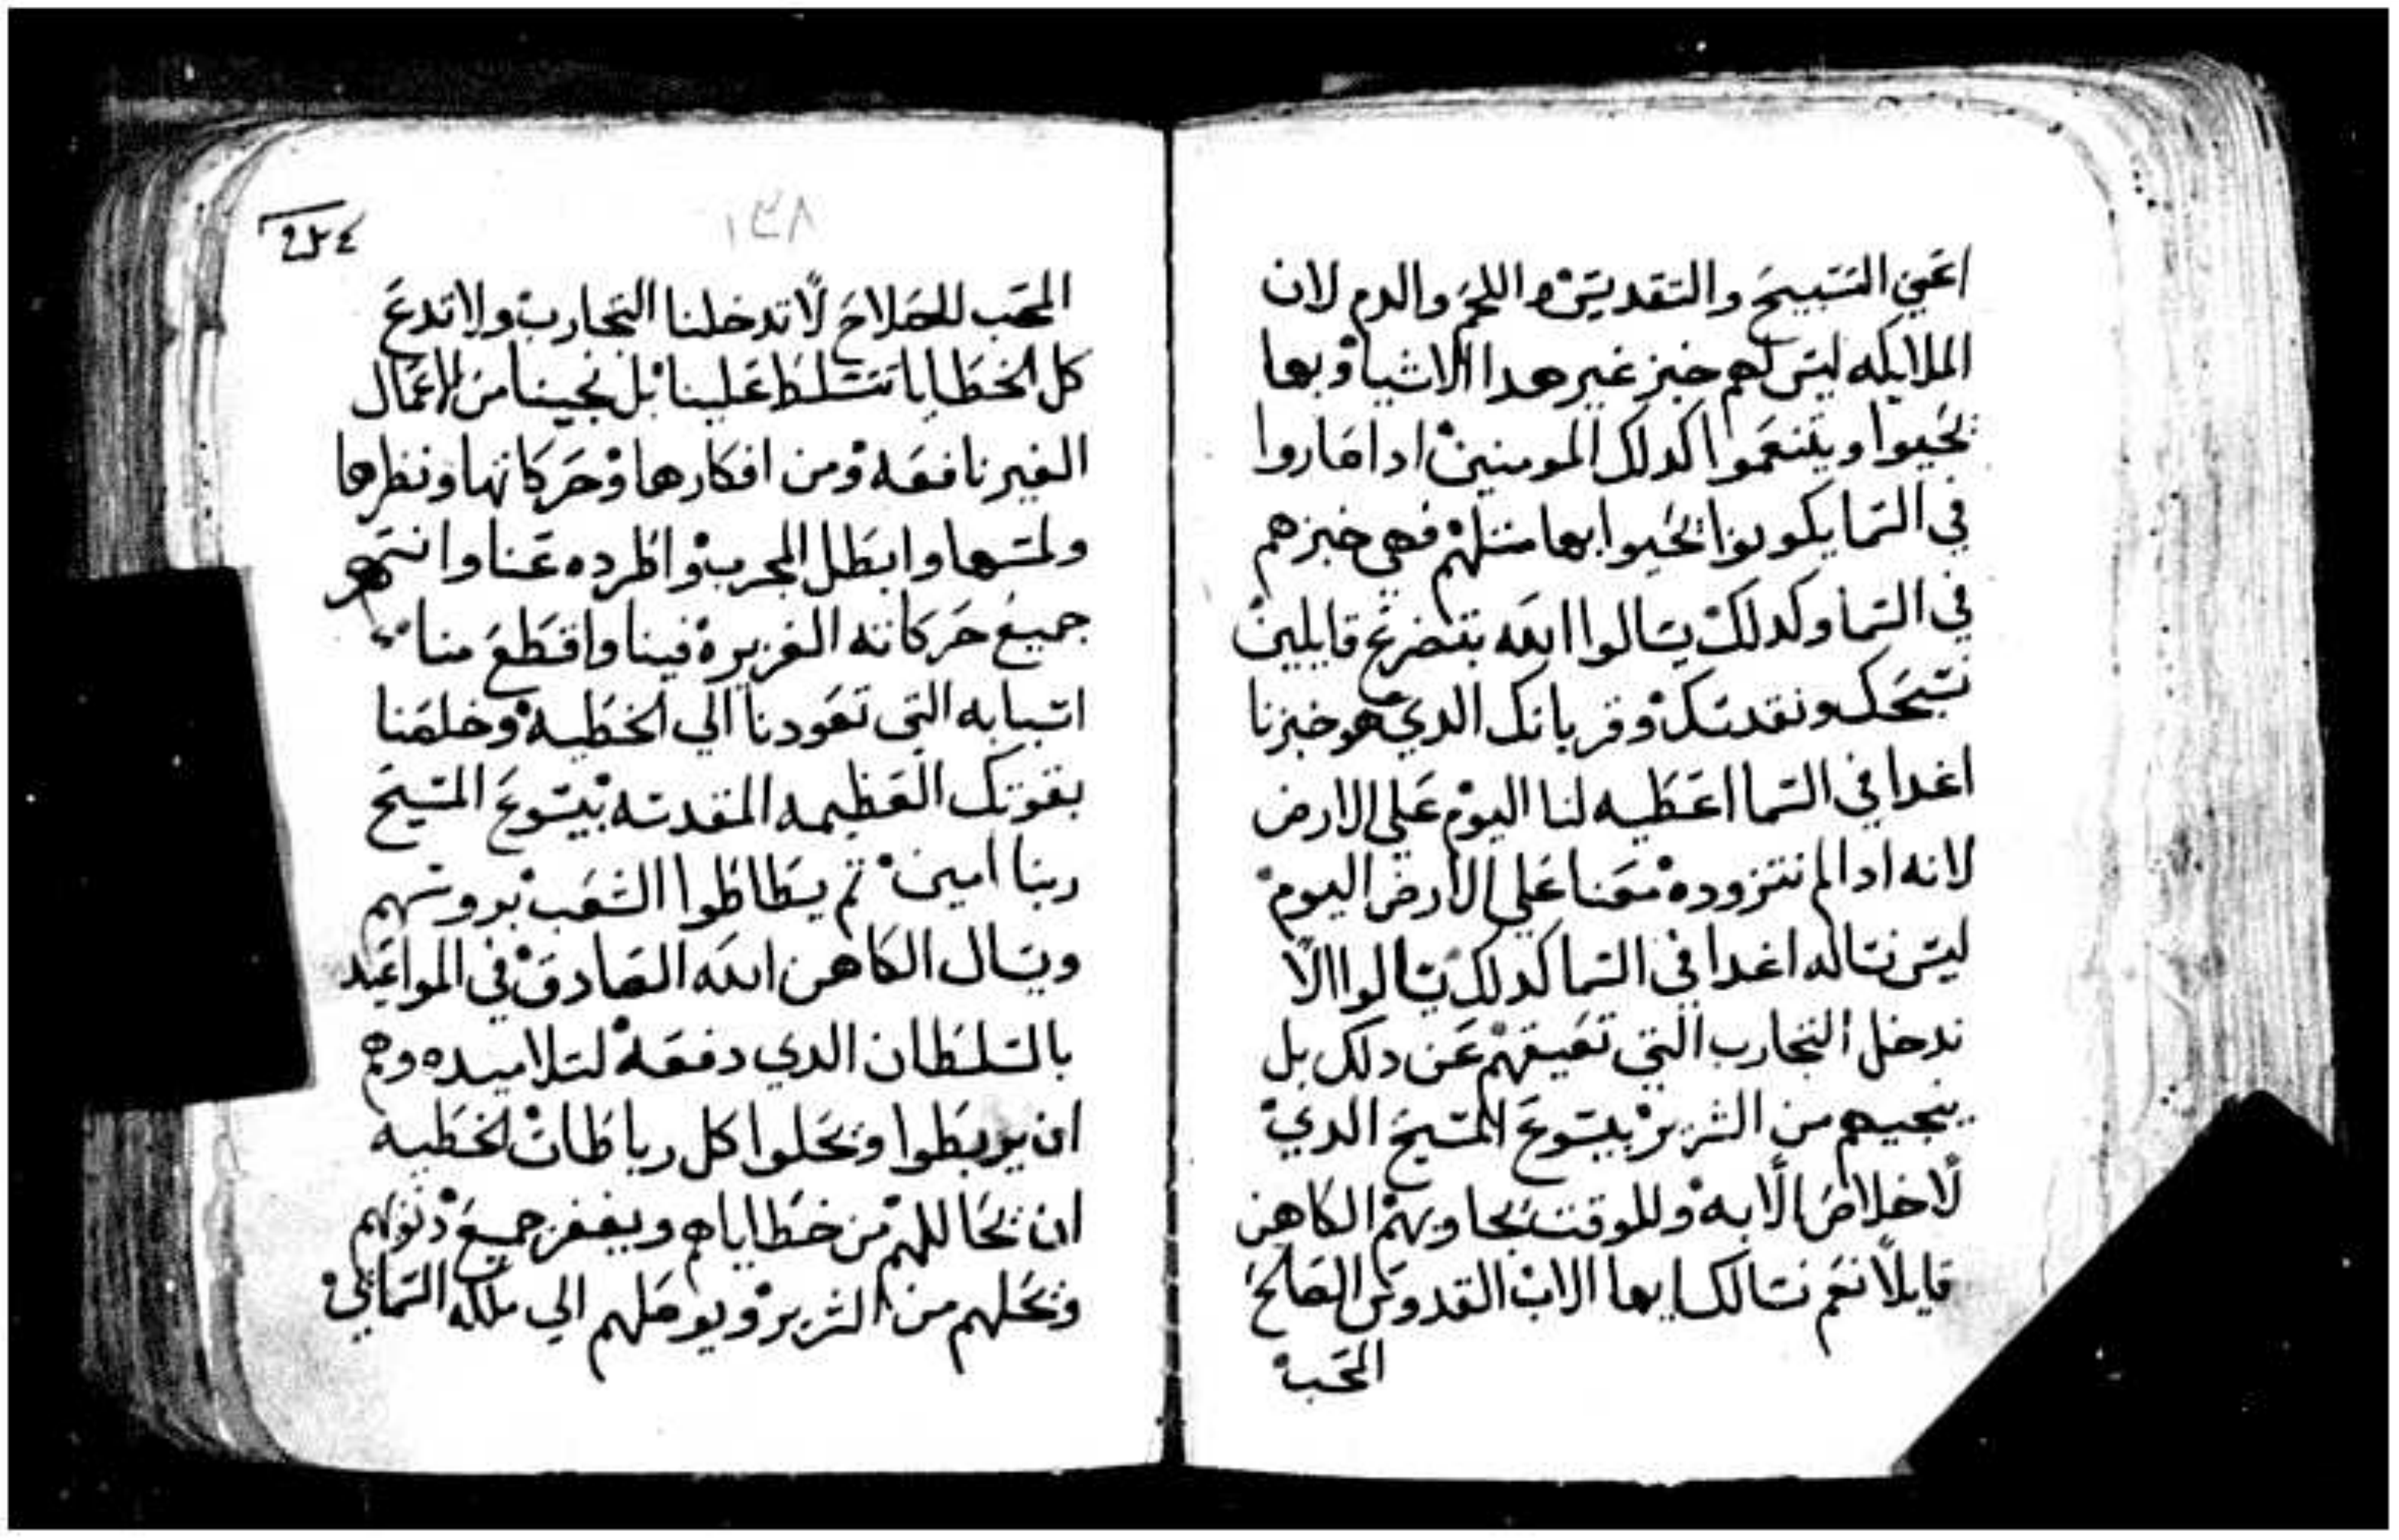 اعني التسبيح والتقديس واللحم والدم لان
الملايكه ليس لهم خبز غير هدا الاشيا وبها
يحيوا ويتنعموا كدلك المومنين ادا صاروا
في السما يكونوا يحيوا بها متلهم فهي خبزهم
في السما وكدلك يسالوا الله بتضرع قايلين
نسبحك ونقدسك وقربانك الدي هو خبزنا
اغدا في السما اعطيه لنا اليوم علي الارض
لانه ادا لم نتزوده معنا علي الارض اليوم
ليس نناله اغدا في السما كدلك يسالوا الا
ندخل التجارب التي تعيقهم عن دلك بل
ينجيهم من الشرير بيسوع المسيح الدي
لا خلاص الا به وللوقت يجاوبهم الكاهن
قايلا نعم نسالك ايها الاب القدوس الصالح
المحب
١٣٨
المحب للصلاح لا تدخلنا التجارب ولا تدع
كل الخطايا تتسلط علينا بل نجينا من الاعمال
الغير نافعه ومن افكارها وحركاتها ونظرها
ولمسها وابطل المجرب واطرده عنا وانتهر
جميع حركاته الغزيرة فينا واقطع منا
اسبابه التي تقودنا الي الخطية وخلصنا
بقوتك العظيمه المقدسه بيسوع المسيح
ربنا امين تم يطاطوا الشعب بروسهم
ويسال الكاهن الله الصادق في المواعيد
بالسلطان الدي دفعه لتلاميده وهم
ان يربطوا ويحلوا كل رباطات الخطيه
ان يحاللهم من خطاياهم ويغفر جميع دنوبهم
ويحلهم من الشرير ويوصلهم الي ملكه السماني